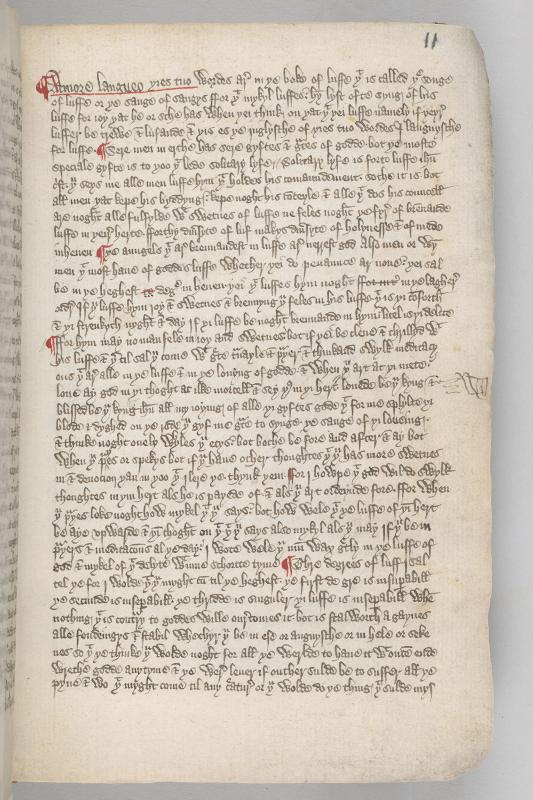 11
Amore langueo yies two wordes ar in ye boke of luffe yt is called ye songe
of luffe or ye sange of sanges ffor yt mykyl luffes hym lyst ofte syng of his
luffe for ioy yat he or sche has when yei think on yat yt yei luffe namely if yeyr
luffer be trewe & lufande & yis es ye ynglysche of yies two wordes I languysche
for luffe Sere men in erthe has sere gyftes & gces of godde bot ye moste
speciale gyfte is to yoo yt lede solitary lyfe Solitary lyfe is for to luffe ihu
yt seys me alle men luffe hym yt holdes his comaundement sothe it is bot
all men yat kepes his byddyng kepes noght his counceyle & alle yt dos his councell
are noght alle fulfylde wt swetnes of luffe ne feles noght ye fyr of brennande
luffe in yeir herte forthy dūsyte of luf makys dūsyte of holynesse & of mede
in heuen ye aungels yt ar brennandest in luffe ar nerrest god Also men or wy
men yt most haue of goddes luffe whether yei do penaunce ar none yei sal
be in ye heghest degr in heuen yei yt luffes hym noght in ye lagher
ordr If yt luffe hym ioy & swetnes & brennyng yt feles in his luffe yt is yi coforth
& yi strenkyth nyght & day if yi luffe be noght brennande in hym litel is yi delite
ffor hym may no man fele in ioy and swetnes bot if yei be clene & fylled wt
his luffe & yr til sal yt come wt gte trauyle & pyer & thinkand swylk meditacy
ons yt ar alle in ye luffe & in ye louyng of godde & when yt art at yi mete
loue ay god in yi thoght at ilke morcell & sey in yi hert loued be yt kyng &
blissed be yt kyng ihu all my ioyinge of alle yi gyftes gode yt for me spylte yi
blode & dyghed on ye rode yt gyf me gce to synge ye sange of yi louinge
& thinke noght onely whyles yt etys bot bothe be fore and after & ay bot
when yt pyes or spekys bot if yt haue other thoughtes yt yt has more swetnes
in & deuocion yan in yoo yt I lere ye thynk yem ffor I howpe yt god wil do swylk
thoughtes in yin hert als he is payde of & als yt art ordeynde fore ffor when
yt pyes loke noght how mykel yt says bot how wele yt ye luffe of yi hert
be aye vpwarde & yi thoght on yt yt says also mykel als yt may If yt be in
pyers & meditacions al ye day I wote wele yt yu may wax gtly in ye luffe of
god & mykel of yt delyte wtinne schortte tyme Thre degrees of luff I sal
tel ye for I wolde yt yu myght cu til ye heghest ye first degre is insupabill
ye secunde is insepabill ye thyrde is singuler yi luffe is insepabill when
nothing yt is contry to goddes wille ouercomes it bot is stalworth agaynes
alle fondeynges & stabil whethyr yt be in ese or anguysche or in hele or seke
nes so yt ye thinke yt wolde noght for all ye werlde to haue it withoute ende
wrethe godde any tyme & ye wer leuer if outher sulde be to suffer all ye
pyne & wo yt myght come til any catur or yt wolde do ye thing yt sulde mys